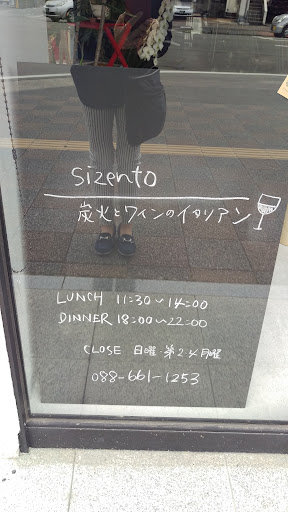 sizento
炭火とワインのイタリアン
LUNCH 11:30~14:00
DINNER 18:00~22:00
CLOSE 日曜 第2.4月曜
088-661-1253